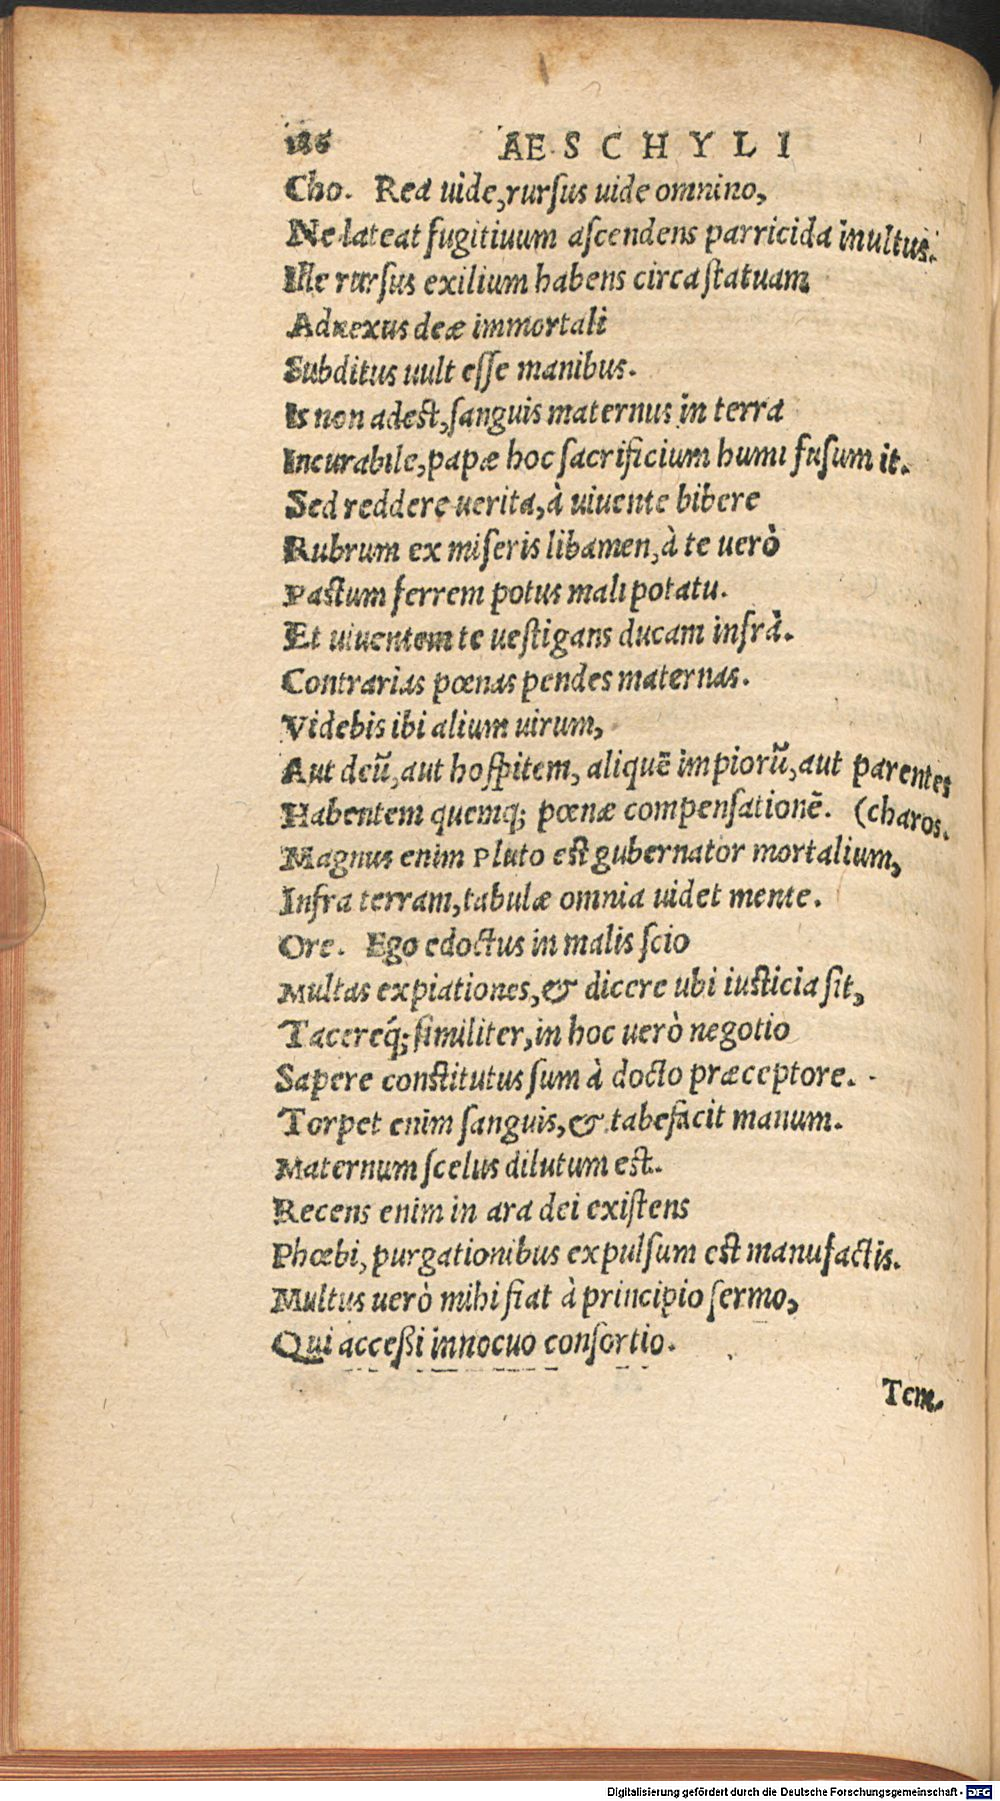 186 AESCHYLI
Cho. Rea uide, rursus uide omnino,
Ne lateat fugitiuum ascendens parricida inultus.
Ille rursus exilium habens circa statuam
Adnexus deæ immortali
Subditus uult esse manibus.
Is non adest, sanguis maternus in terra
Incurabile, papæ hoc sacrificium humi fusum it.
Sed reddere uerita, à uiuente bibere
Rubrum ex miseris libamen, à te uerò
Pastum ferrem potus mali potatu.
Et uiuentem te uestigans ducam infrà.
Contrarias pœnas pendes maternas.
Videbis ibi alium uirum,
Aut deũ, aut hospitem, aliquẽ impiorũ, aut parentes
Habentem quemq; pœnæ compensationẽ. (charos.
Magnus enim Pluto est gubernator mortalium,
Infra terram, tabulæ omnia uidet mente.
Ore. Ego edoctus in malis scio
Multas expiationes, & dicere ubi iusticia sit,
Tacereq́; similiter, in hoc uerò negotio
Sapere constitutus sum à docto præceptore.
Torpet enim sanguis, & tabefacit manum.
Maternum scelus dilutum est.
Recens enim in ara dei existens
Phœbi, purgationibus expulsum est manufactis.
Multus uerò mihi fiat à principio sermo,
Qui acceßi innocuo consortio.
Tem.
Digitalisierung gefördert durch die Deutsche Forschungsgemeinschaft - DFG